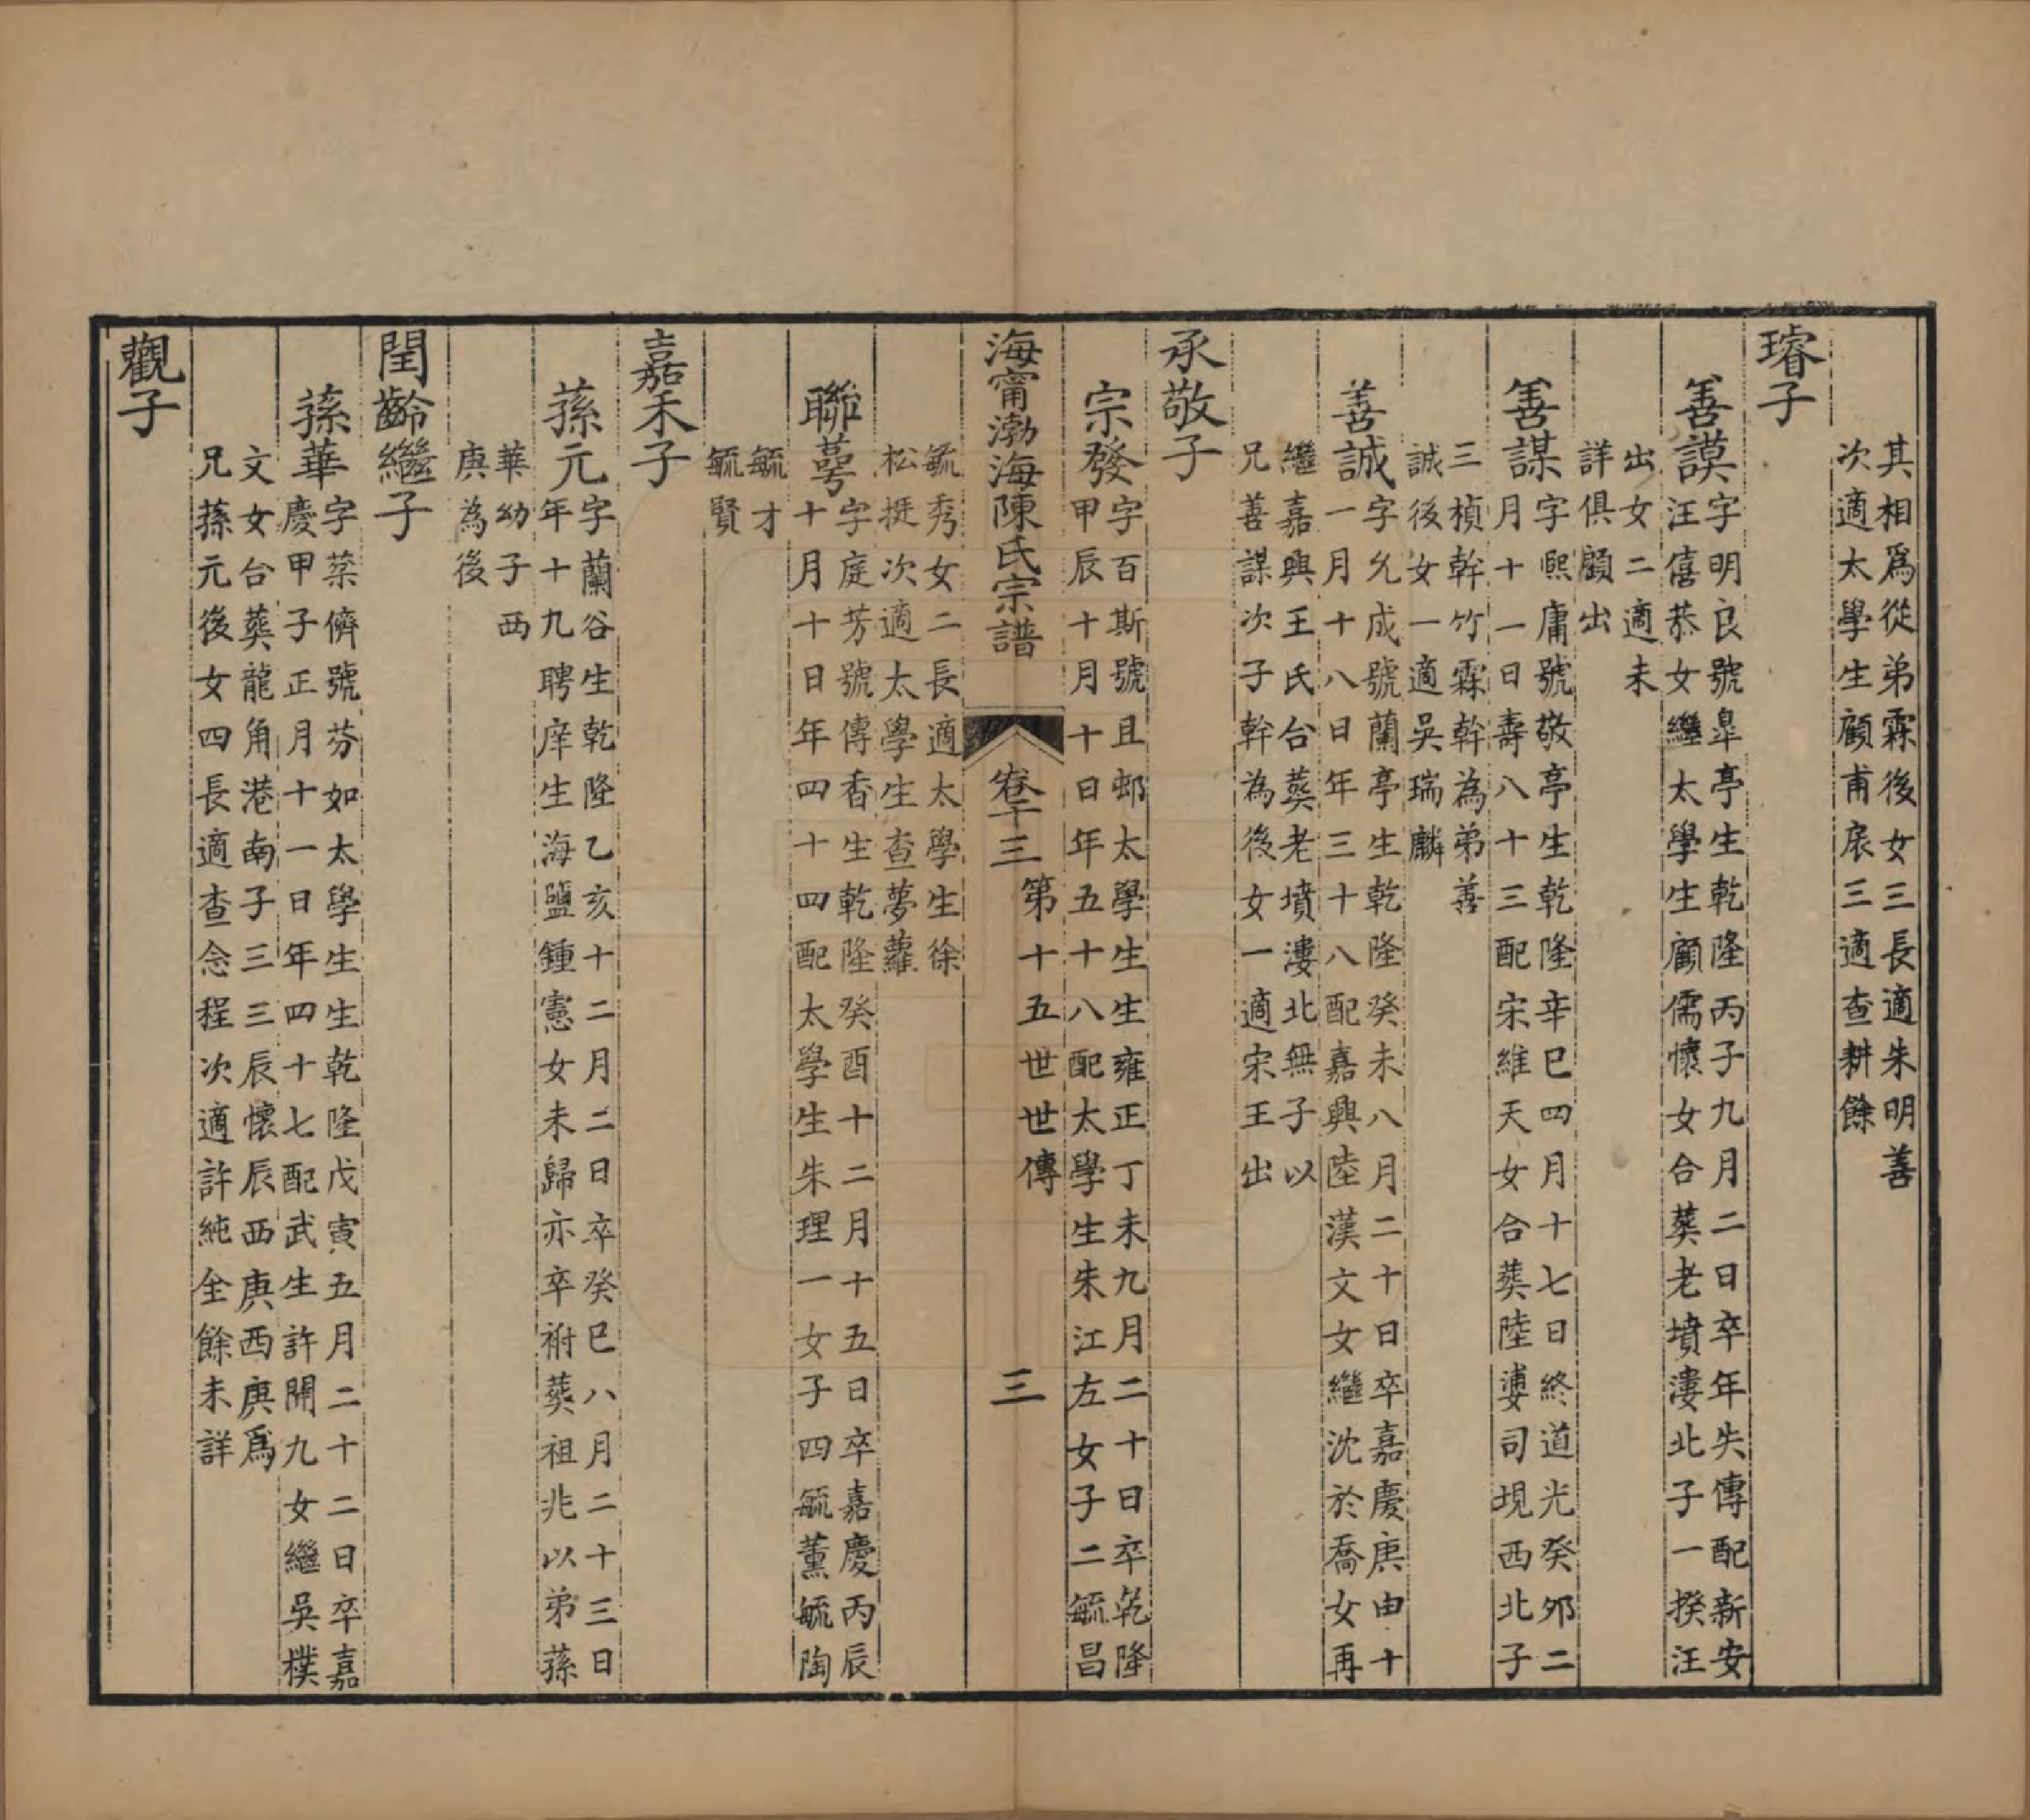 其相爲從弟霖後女三長適朱明善
次適太學生顧甫扆三適查耕餘
璿子
善謨
字明良號臯亭生乾隆丙子九月二日卒年失傳配新安
汪僖恭女繼太學生顧儒懷女合葬老墳漊北子一揆汪
出女二適未
詳俱顧出
善謀
字熙庸號敬亭生乾隆辛巳四月十七日終道光癸夘二
月十一日壽八十三配宋維天女合葬陸婁司垷西北子
三楨幹竹霖幹為弟善
誠後女一適吳瑞麟
善誠
字允成號蘭亭生乾隆癸未八月二十日卒嘉慶庚申十
一月十八日年三十八配嘉興陸漢文女繼沈於喬女再
繼嘉興王氏台葬老墳漊北無子以
兄善謀次子幹為後女一適宋王出
承敬子
宗發
字百斯號且邨太學生生雍正丁未九月二十日卒乾隆
甲辰十月十日年五十八配太學生朱江左女子二毓昌
海甯渤海陳氏宗譜
卷十三
第十五世世傳
三
毓秀女二長適太學生徐
松挺次適太學生查夢蘿
聯萼
字庭芳號傳香生乾隆癸酉十二月十五日卒嘉慶丙辰
十月十日年四十四配太學生朱理一女子四毓薰毓陶
毓才
毓賢
嘉禾子
蓀元
字蘭谷生乾隆乙亥十二月二日卒癸巳八月二十三日
年十九聘庠生海鹽鍾憲女未歸亦卒祔葬祖兆以弟蓀
華幼子西
庚為後
閏齡繼子
蓀華
字棻儕號芬如太學生生乾隆戊寅五月二十二日卒嘉
慶甲子正月十一日年四十七配武生許開九女繼吳樸
文女台葬龍角港南子三三辰懷辰西庚西庚爲
兄蓀元後女四長適查念程次適許純全餘未詳
觀子